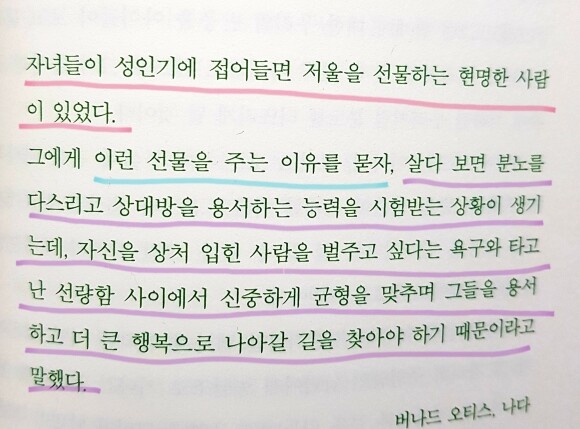 자녀들이 성인기에 접어들면 저울을 선물하는 현명한 사람
이 있었다.
그에게 이런 선물을 주는 이유를 묻자, 살다 보면 분노를
다스리고 상대방을 용서하는 능력을 시험받는 상황이 생기
는데, 자신을 상처 입힌 사람을 벌주고 싶다는 욕구와 타고
난 선량함 사이에서 신중하게 균형을 맞추며 그들을 용서
하고 더 큰 행복으로 나아갈 길을 찾아야 하기 때문이라고
말했다.
버나드 오티스, 나다